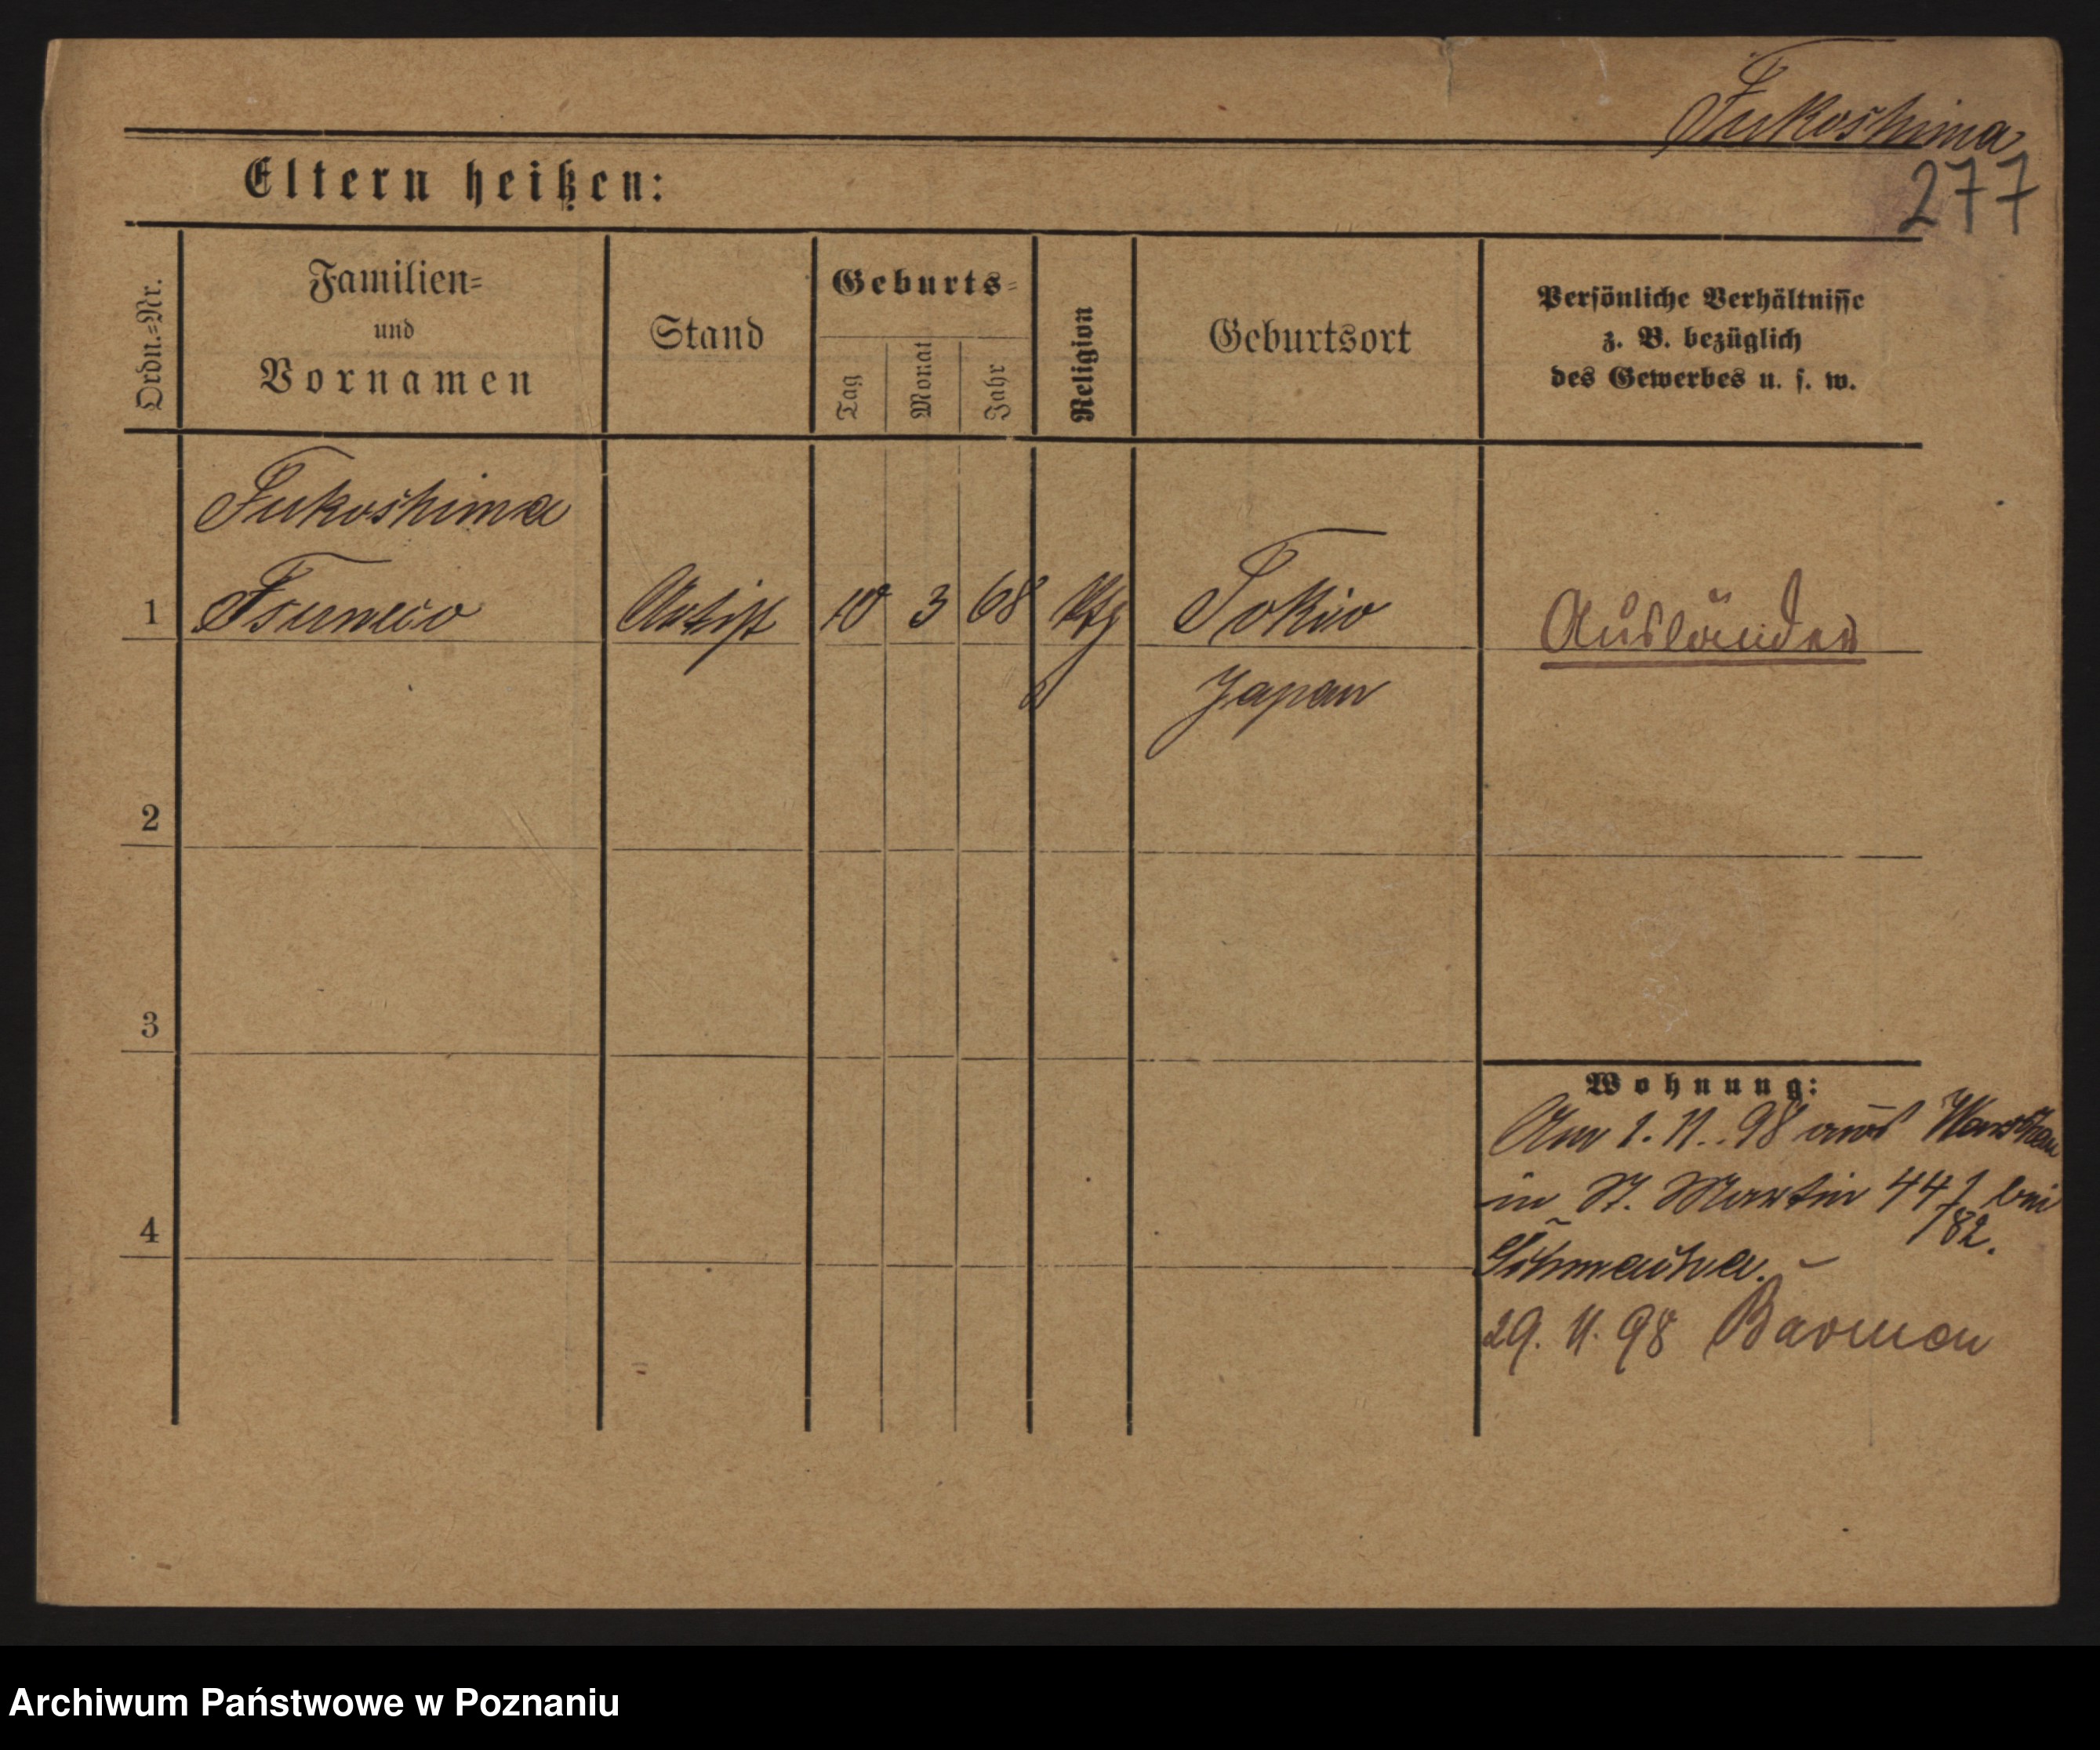 Fukoshima
277
Eltern heißen:
Ordn.=Nr.
Familien=
und
Vornamen
Stand
Geburts=
Tag
Monat
Jahr
Religion
Geburtsort
Persönliche Verhältnisse
z. B. bezüglich
des Gewerbes u. s. w.
Fukoshima
1 Artist 10 3 68 Tokio Ausländer
Japan
2
3
4
Wohnung:
Am 1. 11. 98 aus Warschau
in St. Martin 44 bei
182.
29. 11. 98 Barmen
Archiwum Państwowe w Poznaniu